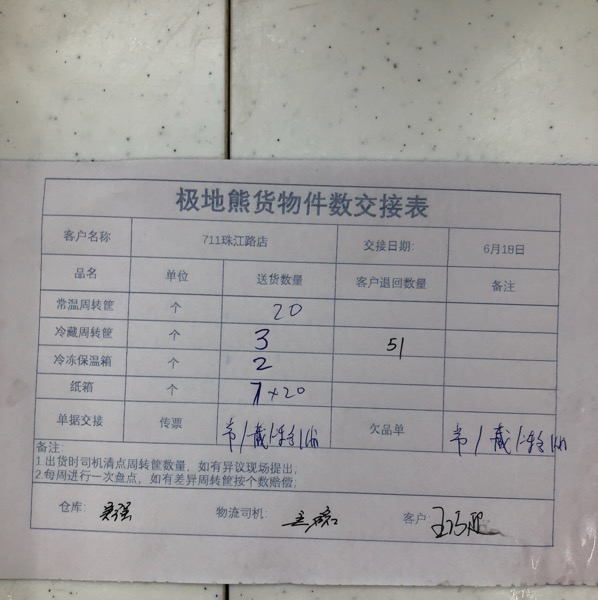 极地熊货物件数交接表
客户名称 711珠江路店 交接日期: 6月19日
品名 单位 送货数量 客户退回数量 备注
常温周转筐 个 20
冷藏周转筐 个 3 51
冷冻保温箱 个 2
纸箱 个 7+20
单据交接 传票 欠品单
备注:
1.出货时司机清点周转筐数量，如有异议现场提出；
2.每周进行一次盘点，如有差异周转筐按个数赔偿；
仓库: 物流司机: 客户: